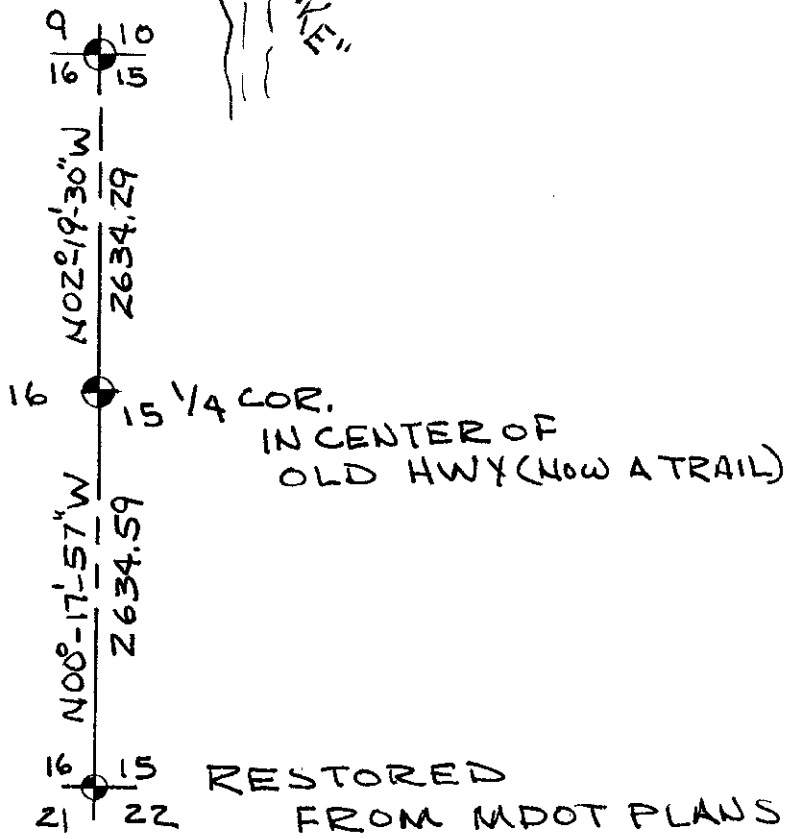 KE"
9 10
16 15
N02°-19'-30"W
2634.29
16 15 1/4 COR.
IN CENTER OF
OLD HWY (NOW A TRAIL)
N00°-17'-57"W
2634.59
16 15 RESTORED
21 22 FROM MDOT PLANS